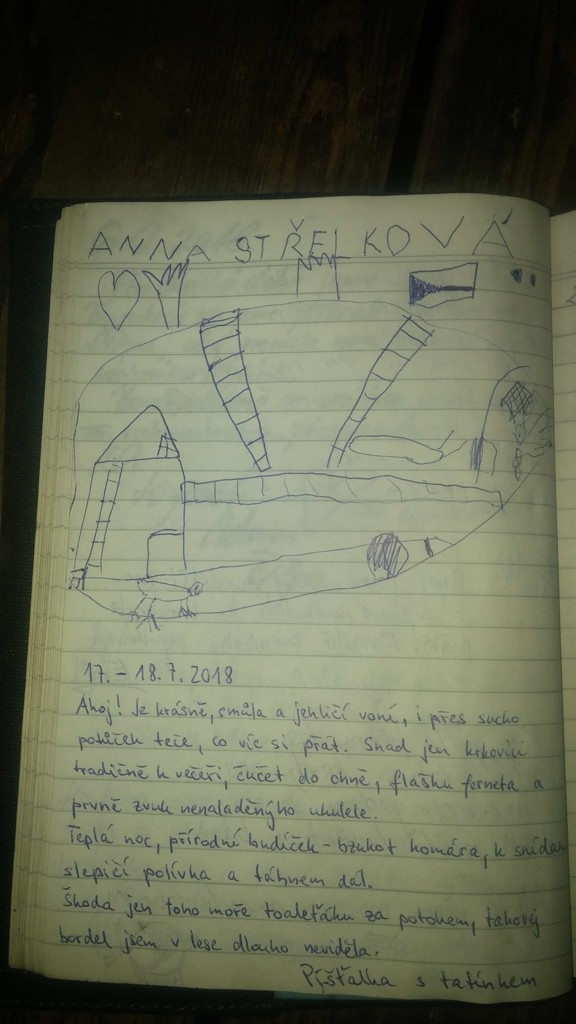 ANNA STŘELKOVÁ
17. – 18. 7. 2018
Ahoj! Je krásně, smůla a jehličí voní, i přes sucho
potůček teče, co víc si přát. Snad jen krkovici
tradičně k večeři, čučet do ohně, flašku ferneta a
prvně zvuk nenaladěnýho ukulele.
Teplá noc, přírodní budíček – bzukot komára, k snídani
slepičí polívka a táhnem dál.
Škoda jen toho moře toaleťáku za potokem, takovej
bordel jsem v lese dlouho neviděla.
Píšťalka s tatínkem